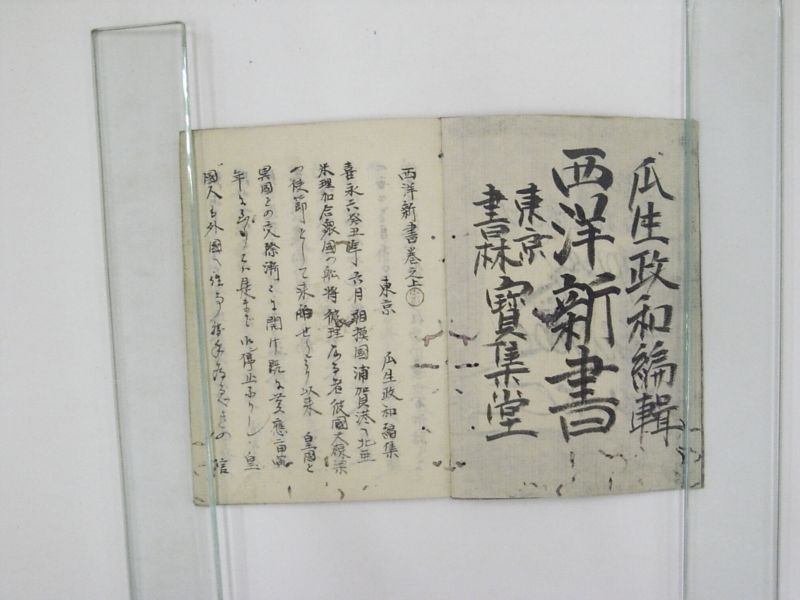 瓜生政和編輯
西洋新書
東京
書林
寳集堂
西洋新書巻之上
東京 瓜生政和編集
喜永六癸丑年六月相摸國浦賀港へ北亜
米理加合衆國の船将彼理なる者彼國大統領
の使節として来舶せしより以来 皇國と
異國との交際漸くに開け既に慶應
年に至りては是まで 停止なりし 皇
國人も外國へ